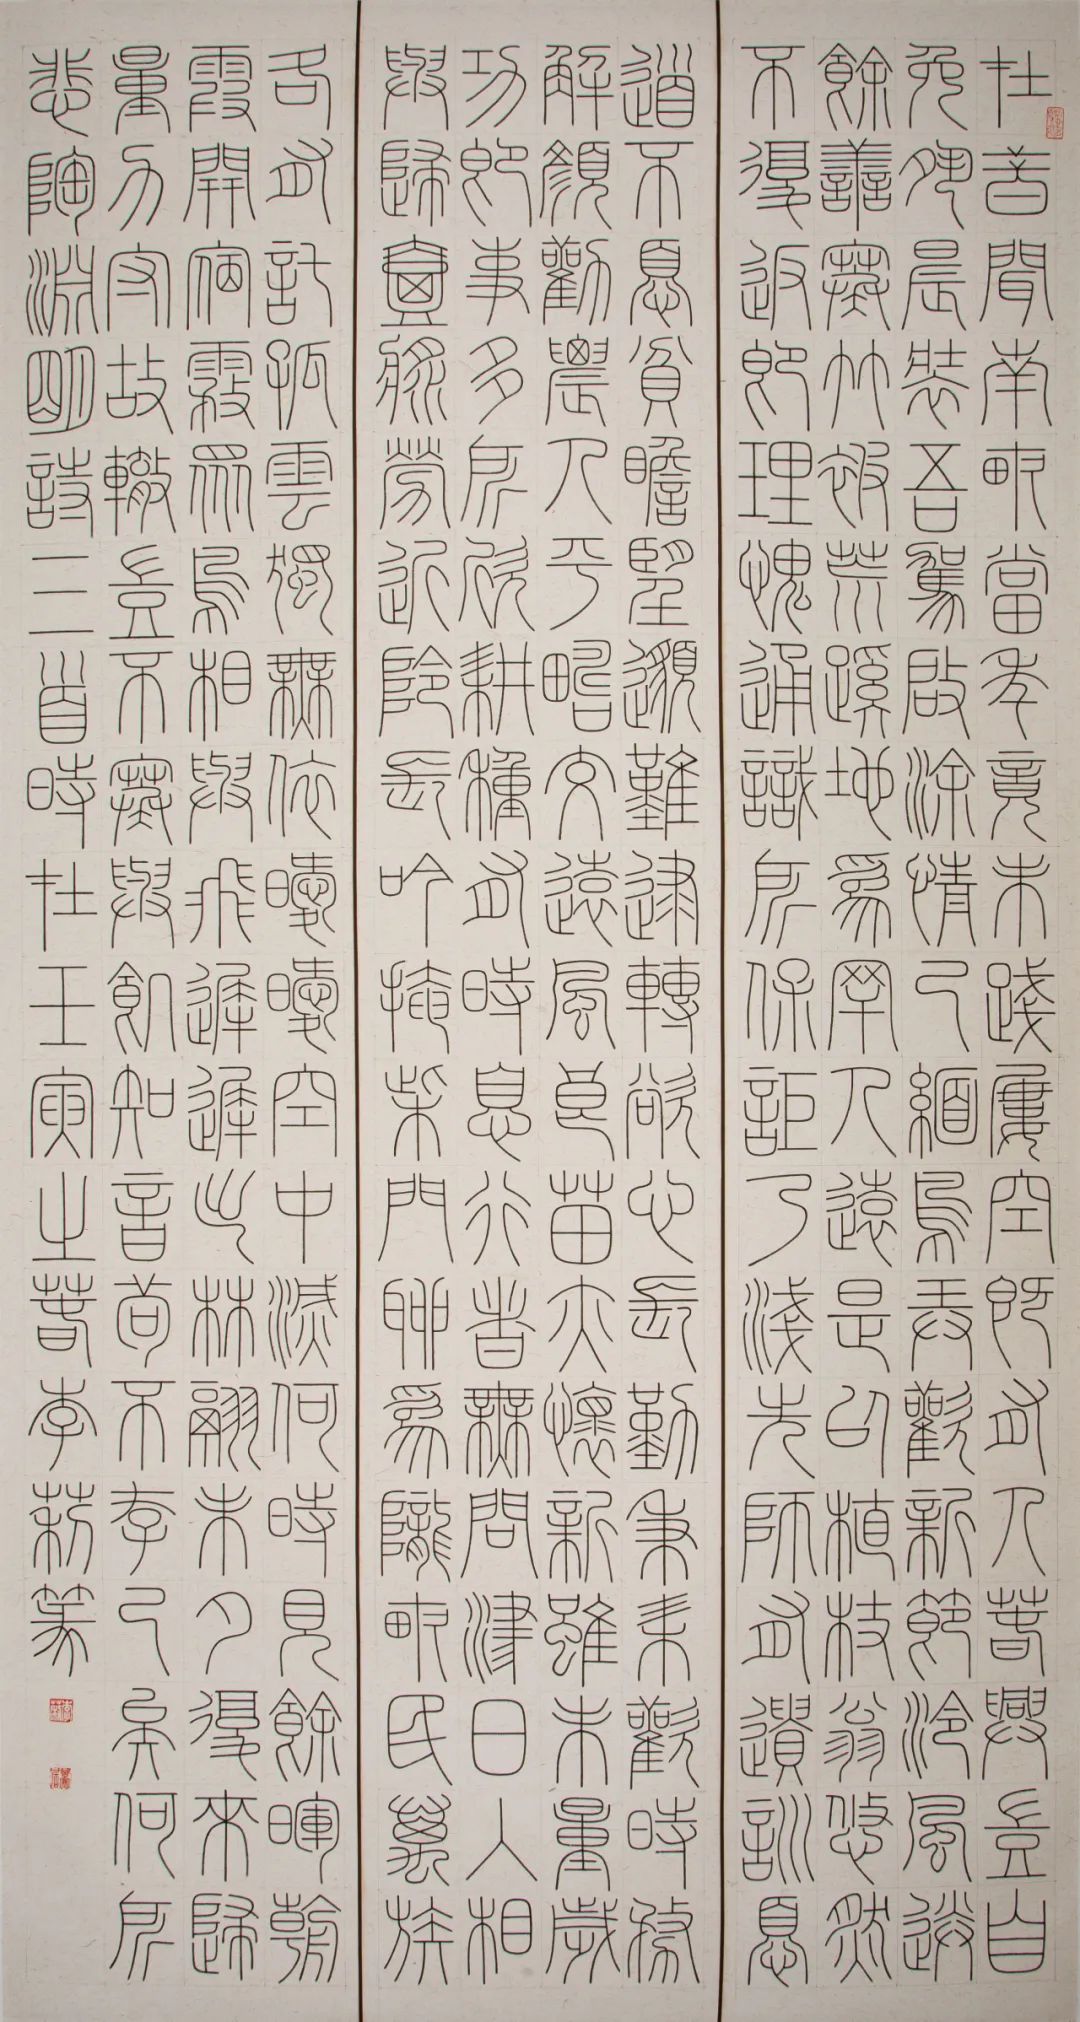 在昔聞南畝當年竟未踐屢空既有人春興豈自
免夙晨裝吾駕啟涂情已緬鳥弄歡新節泠風送
餘善寒竹被荒蹊地為罕人遠是以植杖翁悠然
不復返即理愧通識所保詎乃淺先師有遺訓憂
道不憂貧瞻望邈難逮轉欲心長勤秉耒歡時務
解顏勸農人平疇交遠風良苗亦懷新雖未量歲
功即事多所欣耕種有時息行者無問津日入相
與歸壺漿勞近鄰長吟掩柴門聊為隴畝民萬族
各有託孤雲獨無依曖曖空中滅何時見餘暉朝
霞開宿霧眾鳥相與飛遲遲出林翮未夕復來歸
量力守故轍豈不寒與飢知音苟不存已矣何所
悲陶淵明詩三首時在壬寅之春李莉篆